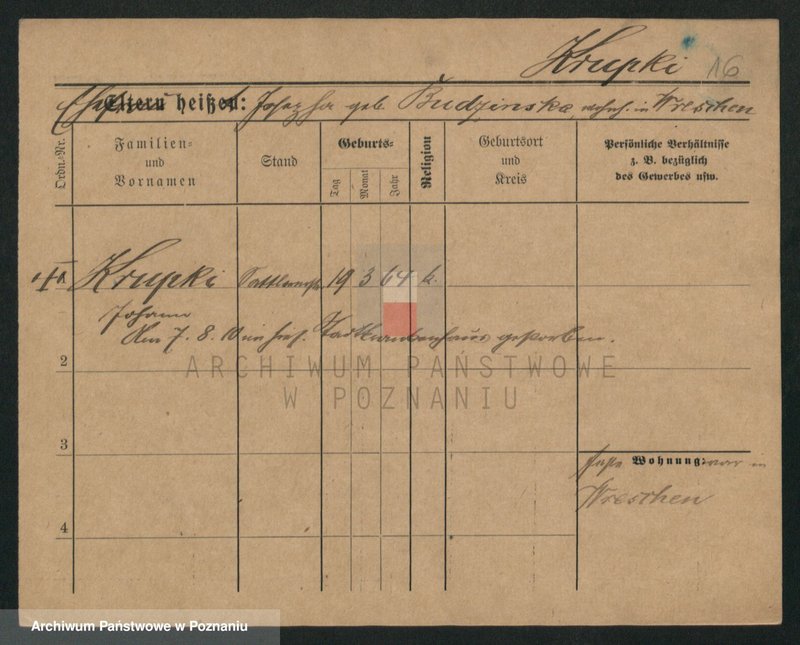 Krupki 16
Eltern heißen: Josepha geb. Budzinska, wohnh. in Wreschen
Ordn.-Nr.
Familien- und Vornamen
Stand
Geburts-
Tag
Monat
Jahr
Religion
Geburtsort und Kreis
Persönliche Verhältnisse
z. B. bezüglich
des Gewerbes usw.
Krupki 19 3 64 k.
Johann
Am 7. 8. 10 im hies. Stadtkrankenhaus gestorben.
2
ARCHIWUM PAŃSTWOWE
W POZNANIU
3
Wohnung: war in
Wreschen
4
Archiwum Państwowe w Poznaniu